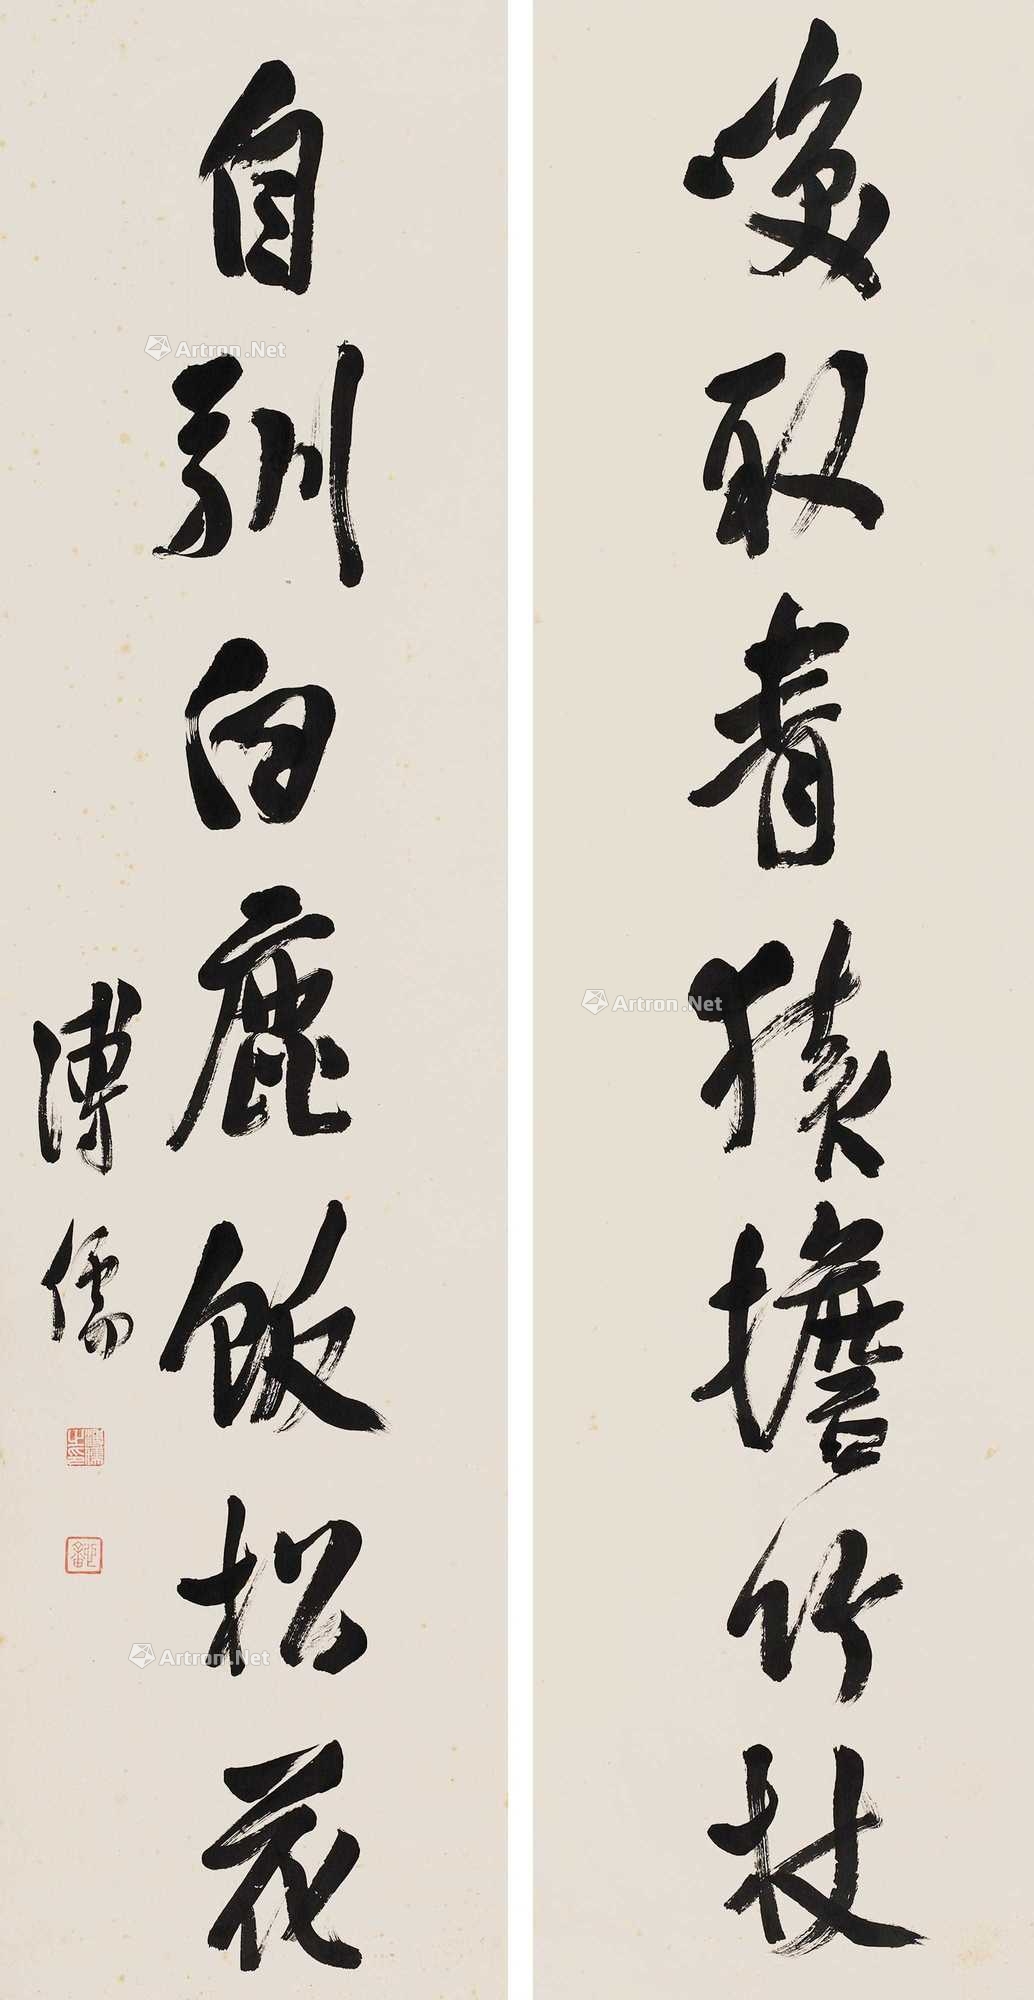 喚取青猿擔竹杖
自馴白鹿飯松花
溥儒
Artron.Net
Artron.Net
Artron.Net